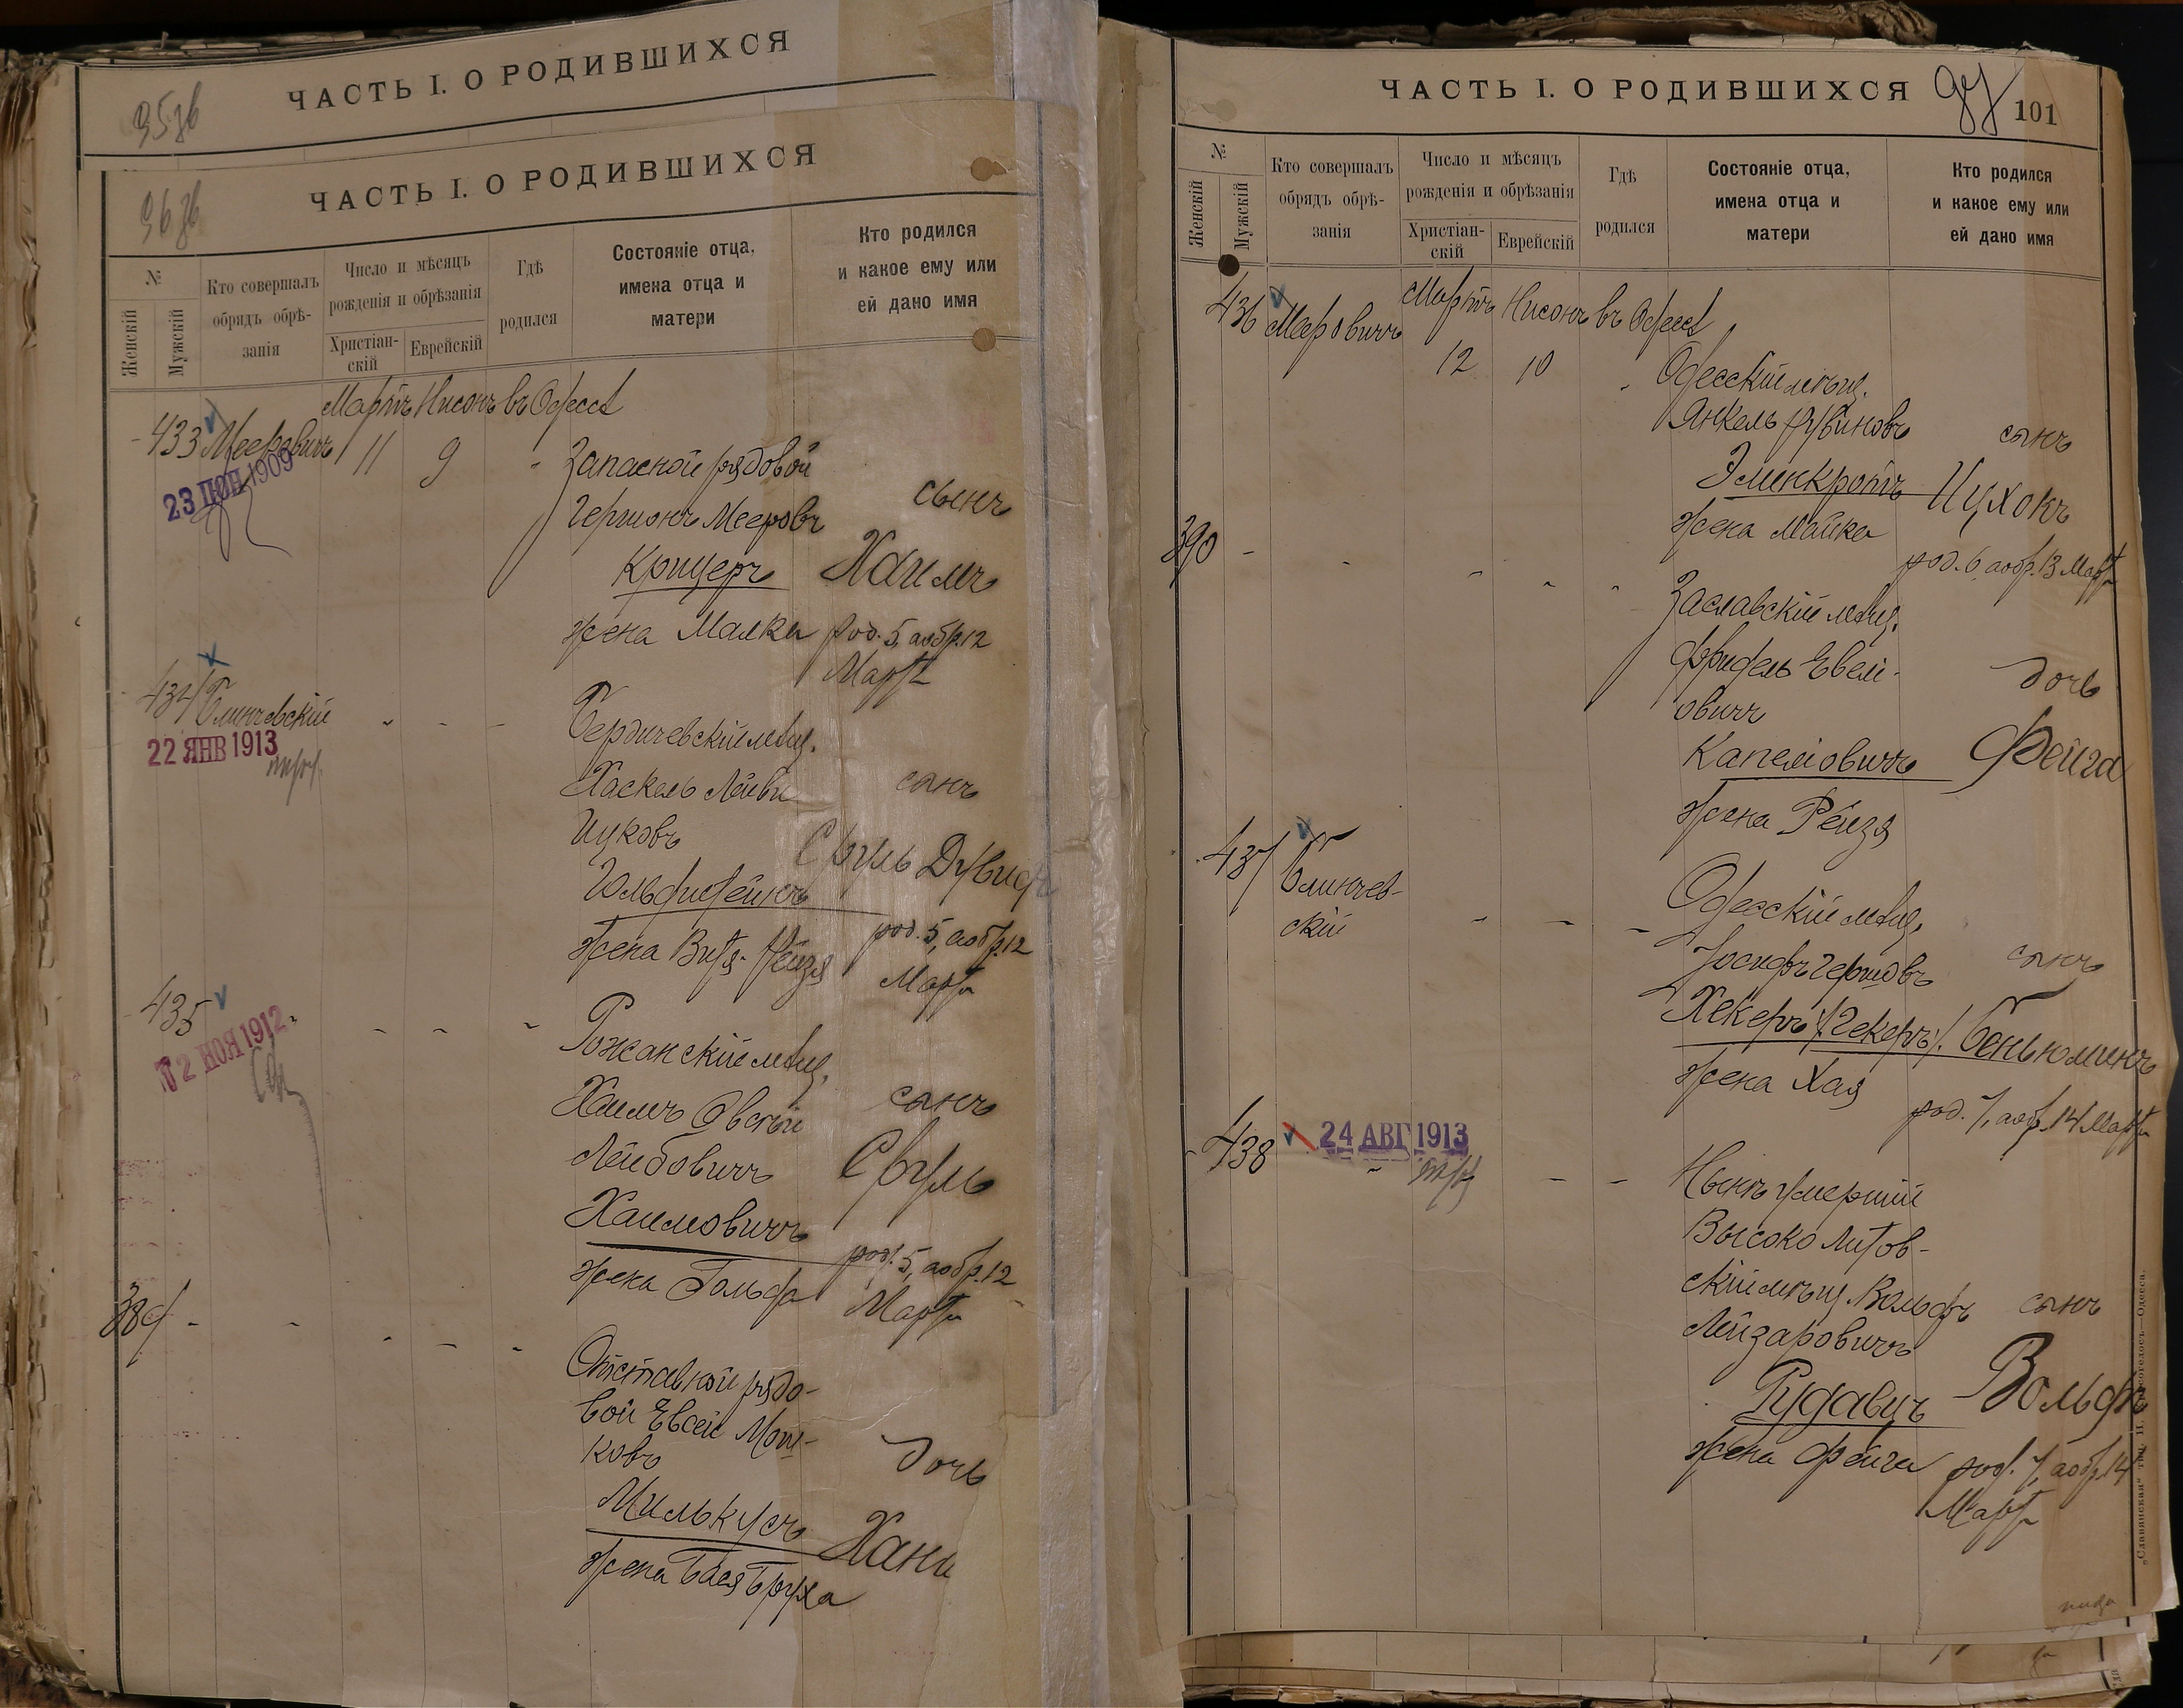 ЧАСТЬ I. О РОДИВШИХСЯ
95зв
ЧАСТЬ I. О РОДИВШИХСЯ
96зв
№
Женскій
Мужскій
Кто совершалъ
обрядъ обрѣ-
занія
Число и мѣсяцъ
рожденія и обрѣзанія
Христіан-
скій
Еврейскій
Гдѣ
родился
Состояніе отца,
имена отца и
матери
Кто родился
и какое ему или
ей дано имя
Мартъ Нисонъ въ Одессѣ
433 Мееровичъ 11 9 "
23 1909
Запасной рядовой
Гершонъ Мееровъ
Крицеръ
жена Малка
сынъ
Хаимъ
род. 5, а обр. 12
Марта
434 Блинчевскій - - -
22 ЯНВ 1913
Бердичевскій мѣщ.
Хаскель Лейви
Ицковъ
Гольдштейнъ
жена Витя-Рейзя
сынъ
Сруль Дувидъ
род. 5, а обр. 12
Марта
435 " - - -
2 НОЯ 1912
Рожанскій мѣщ.
Хаимъ Овсей
Лейбовичъ
Хаимовичъ
жена Гольда
сынъ
Сруль
род. 5, а обр. 12
Марта
389 - - - - -
Отставной рядо-
вой Евсей Мош-
ковъ
Милькусъ
жена Бася Бруха
дочь
Хана
ЧАСТЬ I. О РОДИВШИХСЯ
97
101
№
Женскій
Мужскій
Кто совершалъ
обрядъ обрѣ-
занія
Число и мѣсяцъ
рожденія и обрѣзанія
Христіан-
скій
Еврейскій
Гдѣ
родился
Состояніе отца,
имена отца и
матери
Кто родился
и какое ему или
ей дано имя
Мартъ Нисонъ въ Одессѣ
436 Мееровичъ 12 10 "
Одесскій мѣщ.
Янкель Рувиновъ
Элинкротъ
жена Майка
сынъ
Ицхокъ
род. 6, а обр. 13 Марта
390 - - - - -
Заславскій мѣщ.
Фридель Евели-
овичъ
Капеліовичъ
жена Рейзя
дочь
Фейга
437 Блинчев-
скій - - -
Одесскій мѣщ.
Іосифъ Гершовъ
Хекеръ /Гекеръ/
жена Хая
сынъ
Беньюминъ
род. 7, а обр. 14 Марта
438 " - -
24 АВГ 1913
Нынѣ умершій
Высоко Литов-
скій мѣщ. Вольфъ
Лейзаровичъ
Рудавцъ
жена Фейга
сынъ
Вольфъ
род. 7, а обр. 14
Марта